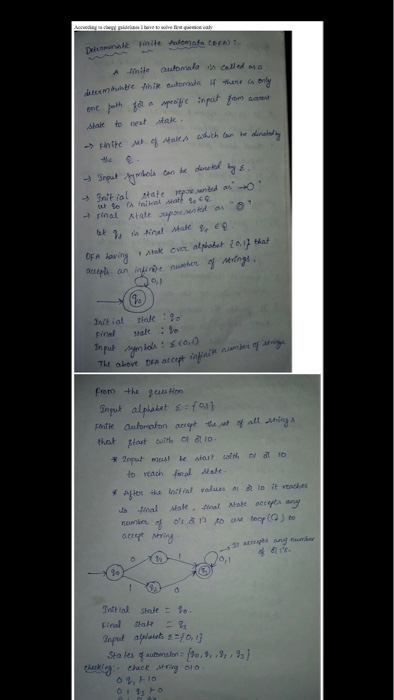 According to chegg guidelines I have to solve first question only
Deterministic finite automata (DFA) :-
A finite automata is called as a
deterministic finite automata if there is only
one path for a specific input from current
state to next state.
→ Finite set of states which can be denoted by
the Q.
→ Input symbols can be denoted by Σ.
→ Initial state represented as "→O"
let q0 is initial state q0 ∈ Q
→ Final state represented as
let qf is final state qf ∈ Q
DFA having 1 state over alphabet {0,1} that
accepts an infinite number of strings.
0,1
q0
Initial state : q0
Final state : q0
Input symbols : Σ(0,1)
The above DFA accept infinite number of strings
From the question
Input alphabet Σ = {0,1}
Finite automaton accept the set of all strings
that start with 01 or 10.
* Input must be start with 01 or 10
to reach final state.
* After the initial values 01 or 10 it reaches
to final state, final state accepts any
number of 0's & 1's so use loop to
accept string.
→ It accepts any number
0 q1 1 0,1
q0
1 q2 0
Initial state = q0.
Final state =
Input alphabets Σ = {0,1}
States of automaton = {q0, q1, q2, q3}
checking - check string 010.